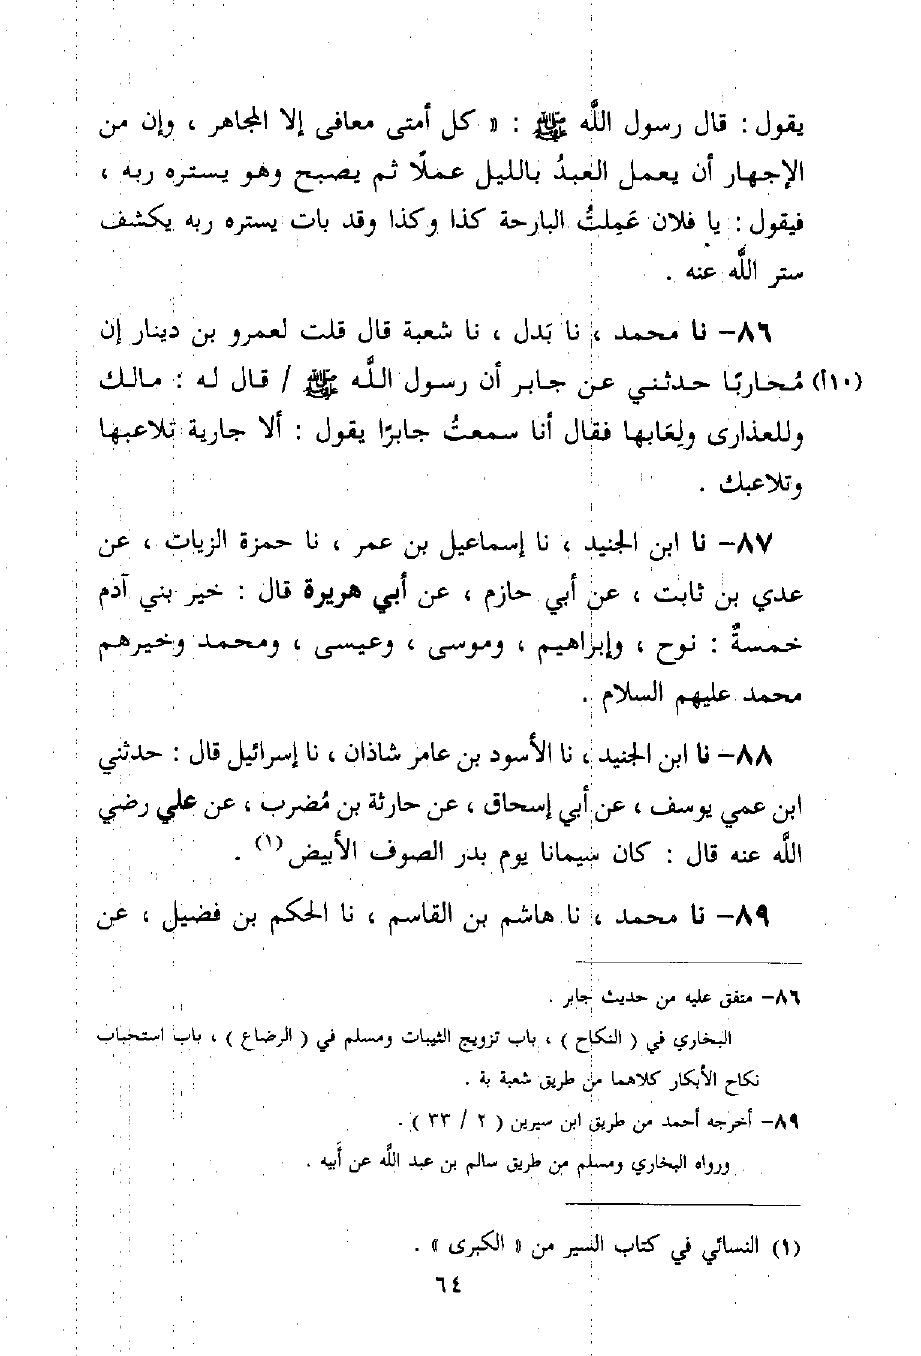 يقول : قال رسول اللَّه ﷺ : « كل أمتى معافى إلا المجاهر ، وإن من
الإجهار أن يعمل العبدُ بالليل عملًا ثم يصبح وهو يستره ربه ،
فيقول : يا فلان عَمِلتُ البارحة كذا وكذا وقد بات يستره ربه يكشف
ستر اللَّه عنه .
٨٦- نا محمد ، نا بَدل ، نا شعبة قال قلت لعمرو بن دينار إن
(١٠أ) مُحاربًا حدثني عن جابر أن رسول اللَّه ﷺ / قال له : مالك
وللعذارى ولِعَابها فقال أنا سمعتُ جابرًا يقول : ألا جارية تلاعبها
وتلاعبك .
٨٧- نا ابن الجنيد ، نا إسماعيل بن عمر ، نا حمزة الزيات ، عن
عدي بن ثابت ، عن أبي حازم ، عن أبي هريرة قال : خير بني آدم
خمسةٌ : نوح ، وإبراهيم ، وموسى ، وعيسى ، ومحمد وخيرهم
محمد عليهم السلام .
٨٨- نا ابن الجنيد ، نا الأسود بن عامر شاذان ، نا إسرائيل قال : حدثني
ابن عمي يوسف ، عن أبي إسحاق ، عن حارثة بن مُضرب ، عن علي رضي
اللَّه عنه قال : كان سيمانا يوم بدر الصوف الأبيض (١) .
٨٩- نا محمد ، نا هاشم بن القاسم ، نا الحكم بن فضيل ، عن
٨٦- متفق عليه من حديث جابر .
البخاري في ( النكاح ) ، باب تزويج الثيبات ومسلم في ( الرضاع ) ، باب استحباب
نكاح الأبكار كلاهما من طريق شعبة بة .
٨٩- أخرجه أحمد من طريق ابن سيرين ( ٢ / ٣٣ ) .
ورواه البخاري ومسلم من طريق سالم بن عبد اللَّه عن أبيه .
(١) النسائي في كتاب السير من « الكبرى » .
٦٤